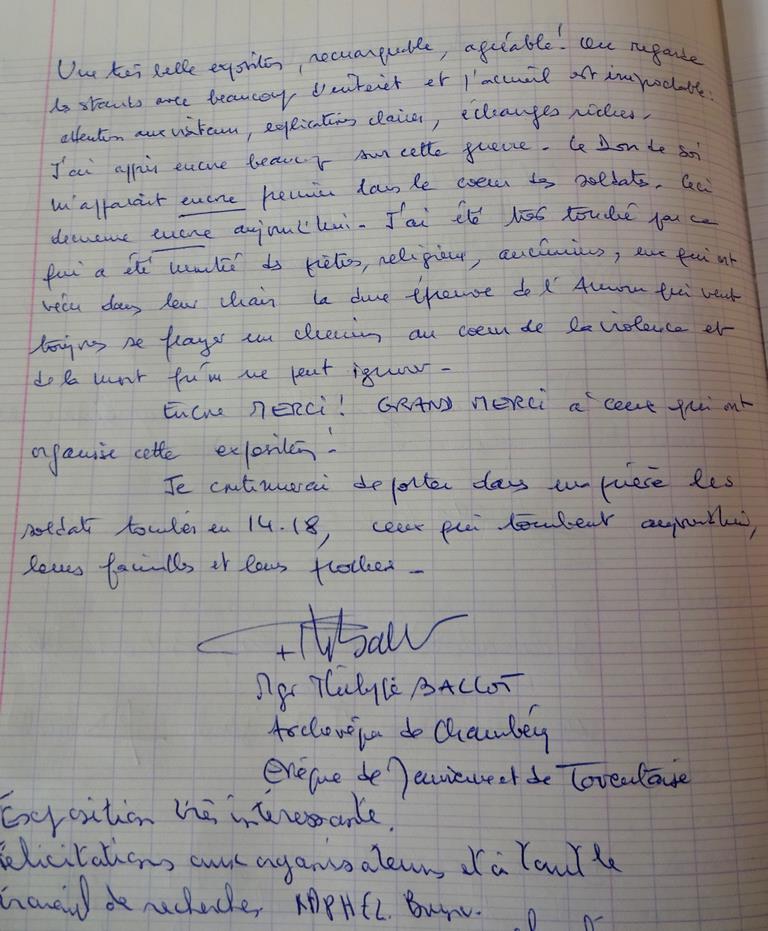 Une très belle exposition, remarquable, agréable! On regarde
les stands avec beaucoup d'intérêt et l'accueil est irréprochable:
attention aux visiteurs, explications claires, échanges riches.
J'ai appris encore beaucoup sur cette guerre. Le Don de Soi
m'apparaît encore premier dans le coeur des soldats. Ceci
demeure encore aujourd'hui. J'ai été très touché par ce
qui a été montré des prêtres, religieux, aumôniers, eux qui ont
vécu dans leur chair la dure épreuve de l'Amour qui veut
toujours se frayer un chemin au coeur de la violence et
de la mort qu'on ne peut ignorer.
Encore MERCI! GRAND MERCI à ceux qui ont
organisé cette exposition!
Je continuerai de porter dans ma prière les
soldats tombés en 14.18, ceux qui tombent aujourd'hui,
leurs familles et leurs proches.
Mgr Philippe BALLOT
Archevêque de Chambéry
Evêque de Maurienne et de Tarentaise
Exposition très intéressante.
Félicitations aux organisateurs et à tout le
travail de recherches. Bruno.